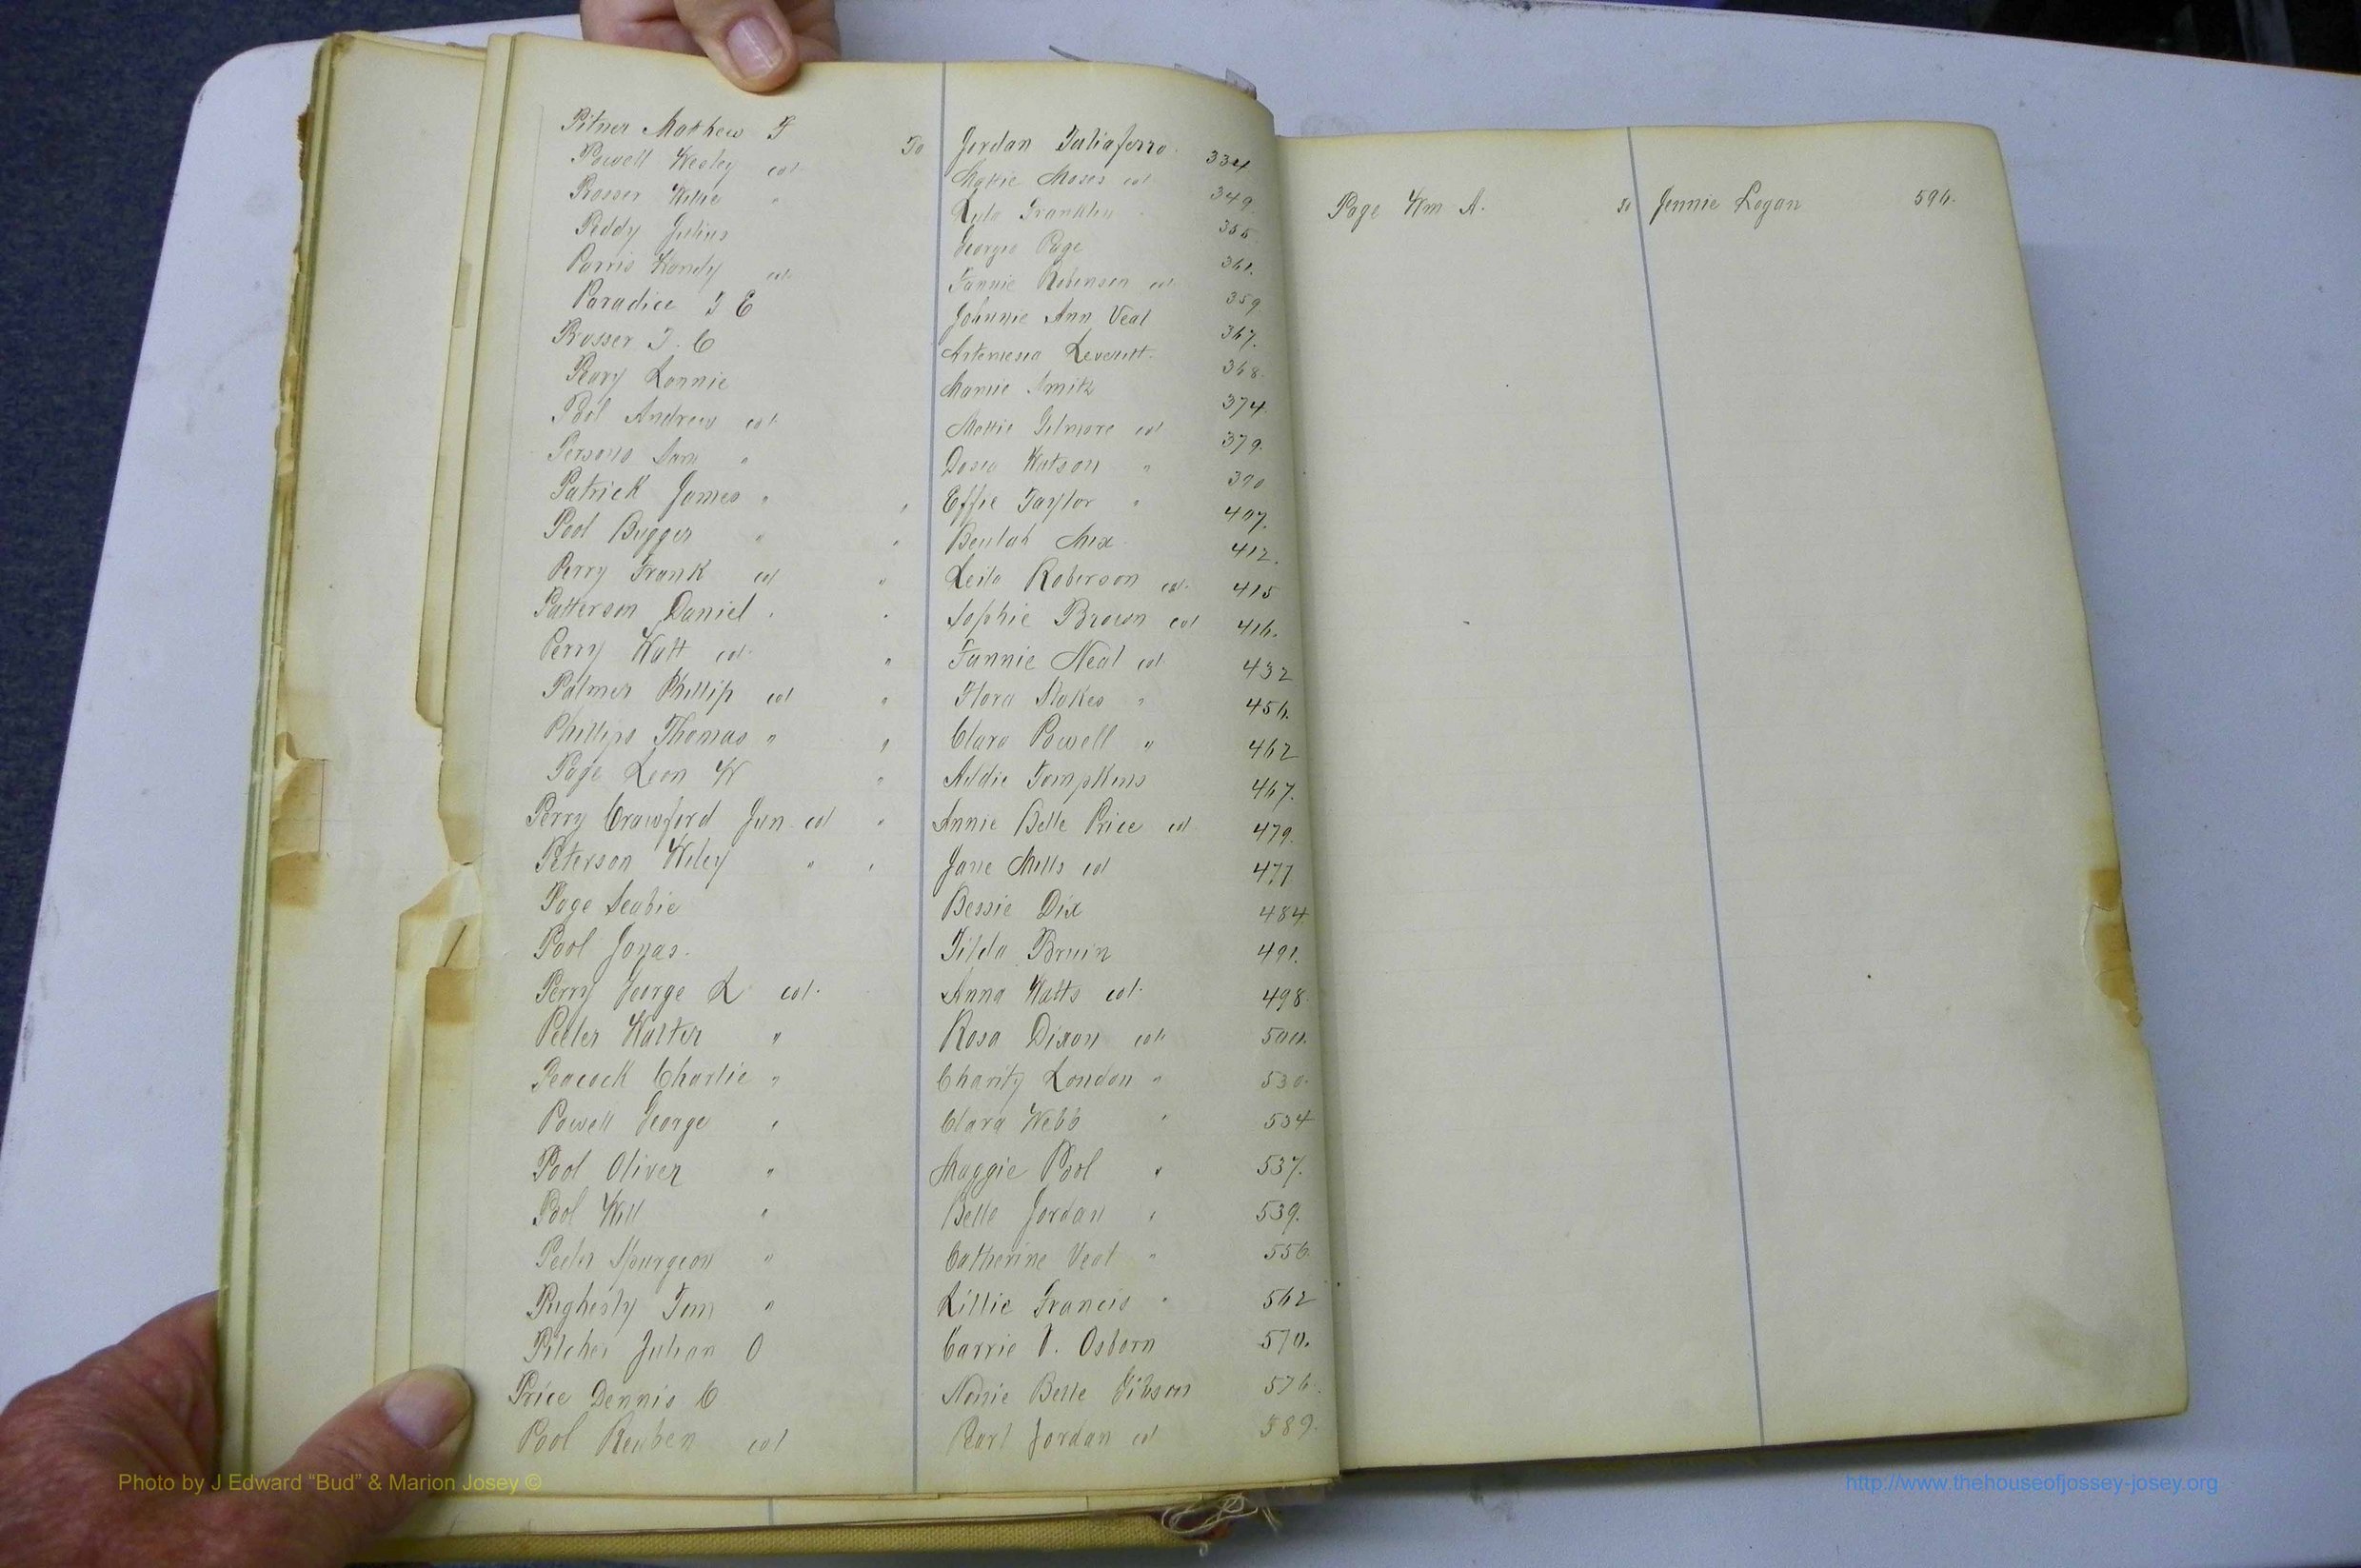 Pitner Mathew T To Jordan Taliaferro 334
Powell Wesley col Mattie Moses col 349.
Prosser Willie " Lula Franklin 355
Peddy Julius Georgia Page 361.
Parris Handy col Fannie Robinson col 359
Paradice J E Johnnie Ann Veal 367.
Prosser J. C Artemesia Leverett 368.
Peavy Lonnie Mamie Smith 374.
Pool Andrew col Mattie Gilmore col 379.
Persons Sam " Dosia Watson " 390
Patrick James " " Effie Taylor " 407.
Pool Bugger " " Beulah Mix 412.
Perry Frank col " Leila Roberson col. 415
Patterson Daniel " " Sophie Brown col 416.
Perry Watt col " Fannie Neal col 432
Palmer Phillip col " Flora Stokes " 456.
Phillips Thomas " " Clara Powell " 462
Page Leon W " Addie Tompkins 467.
Perry Crawford Jun col " Annie Belle Price col 479.
Peterson Wiley " " Jane Mills col 477
Page Seabie Bessie Dix 484.
Pool Jonas. Tilda Bruin 491.
Perry George L col. Anna Watts col. 498.
Peeler Walter " Rosa Dixon col. 500.
Peacock Charlie " Charity London " 530.
Powell George " Clara Webb " 534
Pool Oliver " Maggie Pool " 537.
Pool Will " Belle Jordan " 539.
Peeler Spurgeon " Catherine Veal " 556.
Pughesly Tom " Lillie Francis " 562
Pilcher Julian O Carrie V. Osborn 570.
Price Dennis C Nonie Belle Gibson 576.
Pool Reuben col Pearl Jordan col 589.
Page Wm A. To Jennie Logan 596.
Photo by J Edward “Bud” & Marion Josey ©
http://www.thehouseofjossey-josey.org